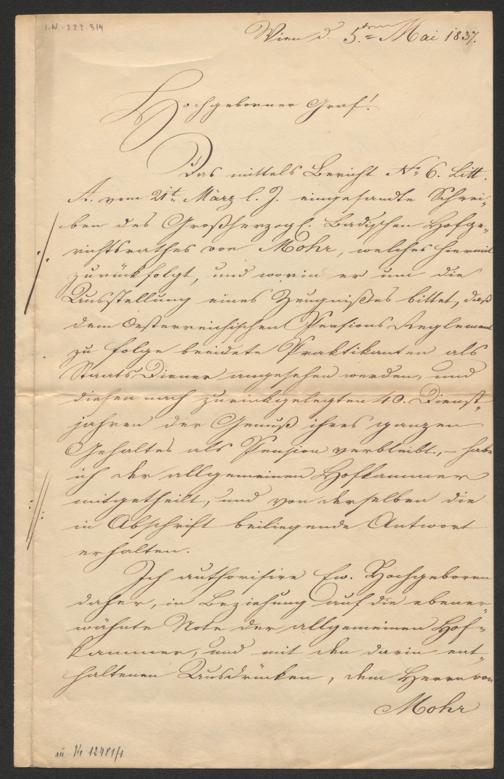 I.N.-222.314
Wien d. 5ten Mai 1837.
Hochgeborner Graf!
Das mittels Bericht No 6. Litt.
A. vom 21t. März l. J. eingesandte Schrei-
ben des Großherzogl. Badischen Hofge-
richtsrathes von Mohr, welches hiermit
zurück folgt, und worin er um die
Ausstellung eines Zeugnißes bittet, daß
dem Oesterreichischen Pensions Reglement
zu folge beeidete Praktikanten als
Staats Diener angesehen werden, und
diesen nach zurückgelegten 40. Dienst-
jahren der Genuß ihres ganzen
Gehaltes als Pension verbleibt, – habe
ich der allgemeinen Hofkammer
mitgetheilt, und von derselben die
in Abschrift beiliegende Antwort
erhalten.
Ich authorisire Ew. Hochgeboren
daher, in Beziehung auf die ebener-
wähnte Note der allgemeinen Hof-
kammer, und mit den darin ent-
haltenen Ausdrücken, dem Herrn von
Mohr
12481/1